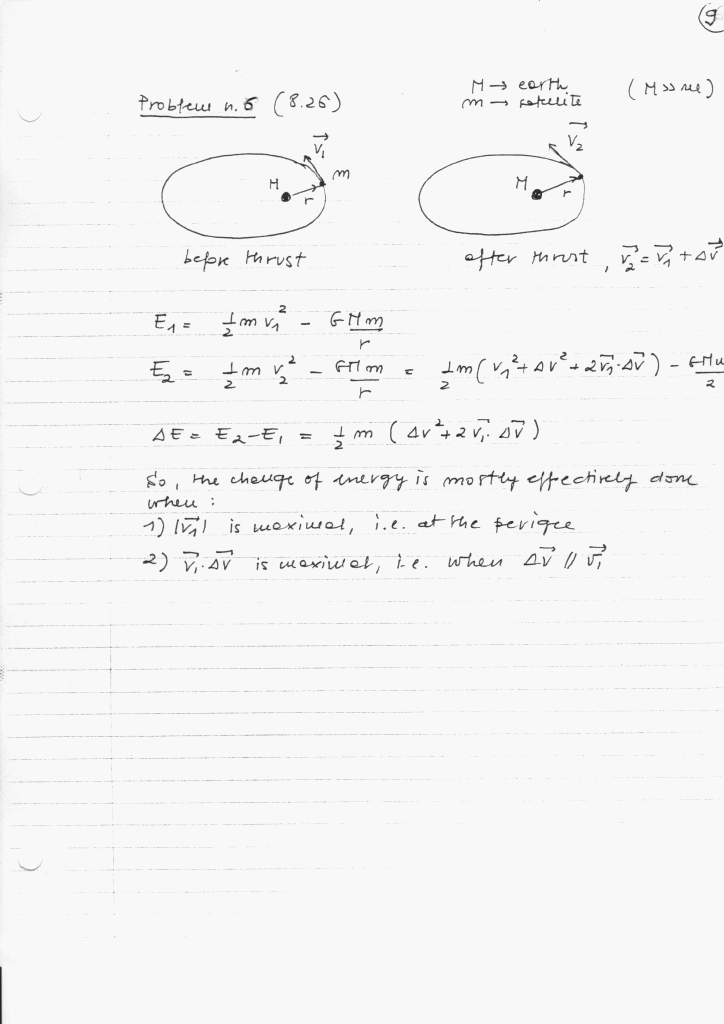 9
M → earth (M >> m)
Problem n. 6 (8.26) m → satellite
V⃗₁ V⃗₂
M r m M r
before thrust after thrust, v⃗₂ = v⃗₁ + Δv⃗
E₁ = ½ m v₁² - GMm/r
E₂ = ½ m v₂² - GMm/r = ½ m (v₁² + Δv² + 2v⃗₁·Δv⃗) - GMm/2
ΔE = E₂ - E₁ = ½ m (Δv² + 2v⃗₁·Δv⃗)
So, the change of energy is mostly effectively done
when :
1) |v⃗₁| is maximal, i.e. at the perigee
2) v⃗₁·Δv⃗ is maximal, i.e. when Δv⃗ // v⃗₁